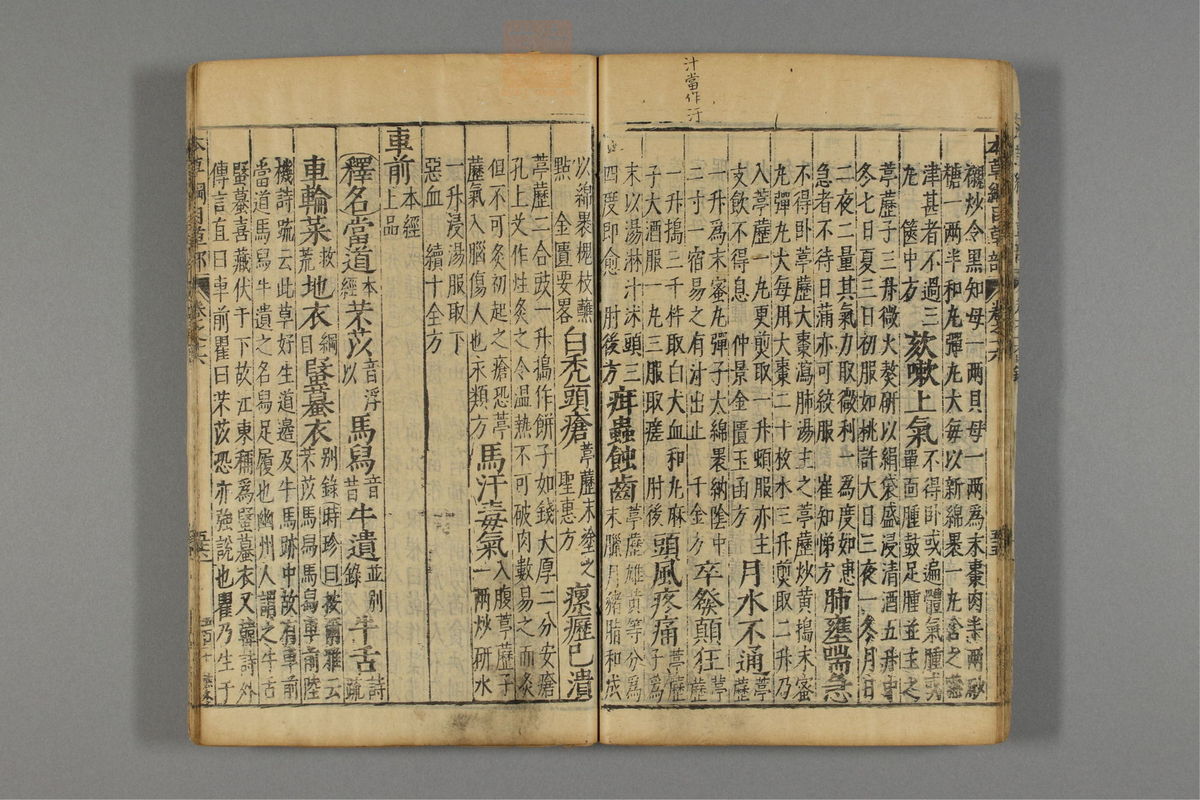 汁當作汗
本草綱目草部 卷之十六
襯炒令黑知母一兩貝母一兩爲末棗肉半兩砂
糖一兩半和丸彈丸大每以新綿裹一丸含之嚥
津甚者不過三丸 篋中方 欬嗽上氣 不得卧或遍體氣腫或單面腫鼓足腫並主之
葶藶子三升微火熬研以絹袋盛浸清酒五升中
冬七日夏三日初服如桃許大日三夜一冬月日
二夜二量其氣力取微利一爲度如患急者不待日滿亦可絞服 崔知悌方 肺壅喘急
不得卧葶藶大棗瀉肺湯主之葶藶炒黃搗末蜜
丸彈丸大每用大棗二十枚水三升煎取二升乃
入葶藶一丸更煎取一升頓服亦主支飲不得息 仲景金匱玉函方 月水不通 葶藶
一升爲末蜜丸彈子大綿裹納陰中二寸一宿易之有汁出止 千金方 卒發顛狂 葶藶
一升搗三千杵取白犬血和丸麻子大酒服一丸三服取瘥 肘後 頭風疼痛 葶藶子爲
末以湯淋汁沐頭三四度即愈 肘後方 疳蟲蝕齒 葶藶雄黃等分爲末臘月豬脂和成
以綿裹槐枝蘸點 金匱要畧 白禿頭瘡 葶藶末塗之 聖惠方 瘰癧已潰
葶藶二合豉一升搗作餅子如錢大厚二分安瘡
孔上艾作炷灸之令溫熱不可破肉數易之而灸
但不可灸初起之瘡恐葶藶氣入腦傷人也永類方 馬汗毒氣 入腹葶藶子一兩炒研水
一升浸湯服取下惡血 續十全方
車前 本經上品
釋名 當道 本經 芣苢 音浮以 馬舄 音昔 牛遺 並別錄 牛舌 詩疏
車輪菜 救荒 地衣 綱目 蝦蟇衣 別錄時珍曰按爾雅云芣苢馬舄馬舄車前陸
機詩疏云此草好生道邊及牛馬跡中故有車前
當道馬舄牛遺之名舄足履也幽州人謂之牛舌
蝦蟇喜藏伏于下故江東稱爲蝦蟇衣又韓詩外
傳言直曰車前瞿曰芣苢恐亦強說也瞿乃生于
本草綱目草部 卷之十六